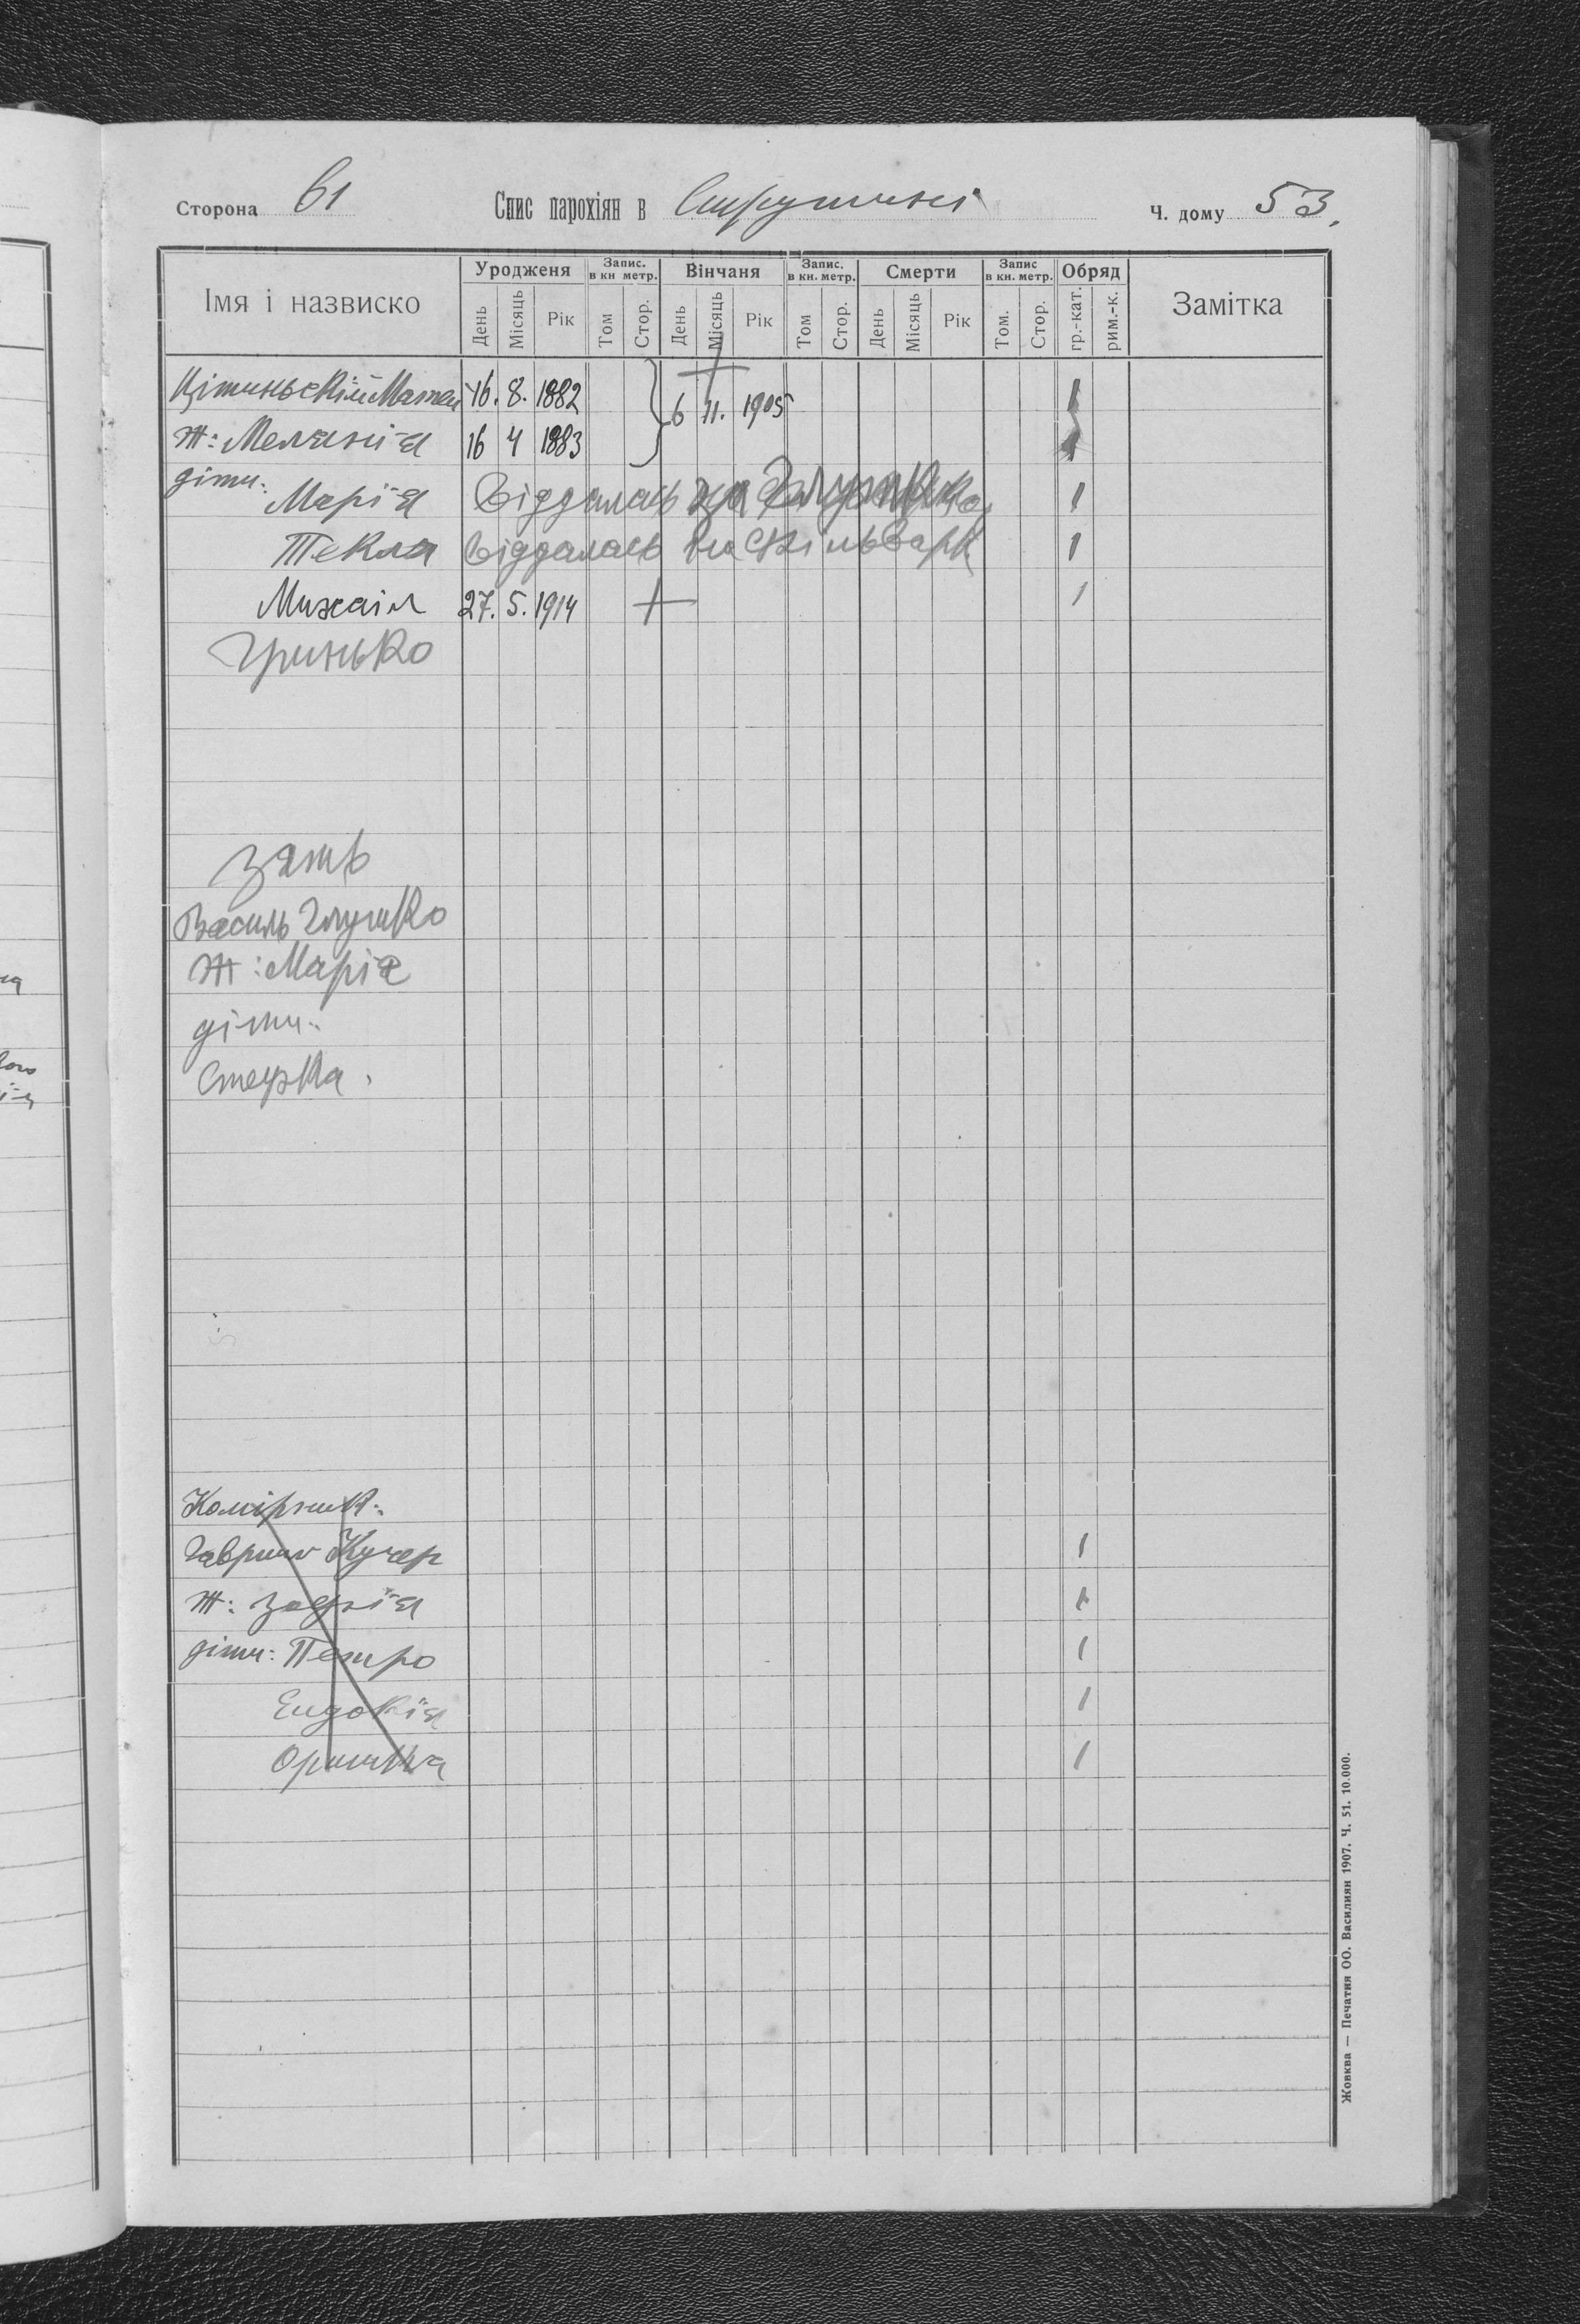 Сторона 61 Спис парохіян в Струтині Ч. дому 53.
Імя і назвиско Уродженя Запис. в кн метр. Вінчаня Запис. в кн. метр. Смерти Запис в кн. метр. Обряд Замітка
День Місяць Рік Том Стор. День Місяць Рік Том Стор. День Місяць Рік Том. Стор. гр.-кат. рим.-к.
16. 8. 1882 6 11. 1905 1
ж: Меланія 16 4 1883 1
діти: Марія Віддалась за Глушка 1
Текля Віддалась на 1
Михаіл 27. 5. 1914 + 1
Гринько
зять
Василь Глушко
ж: Марія
діти:
Стефка
Комірник:
Гаврило Кучер 1
ж: Зофія 1
діти: Петро 1
Евдокія 1
Оришка 1
Жовква — Печатня ОО. Василиян 1907. Ч. 51. 10.000.